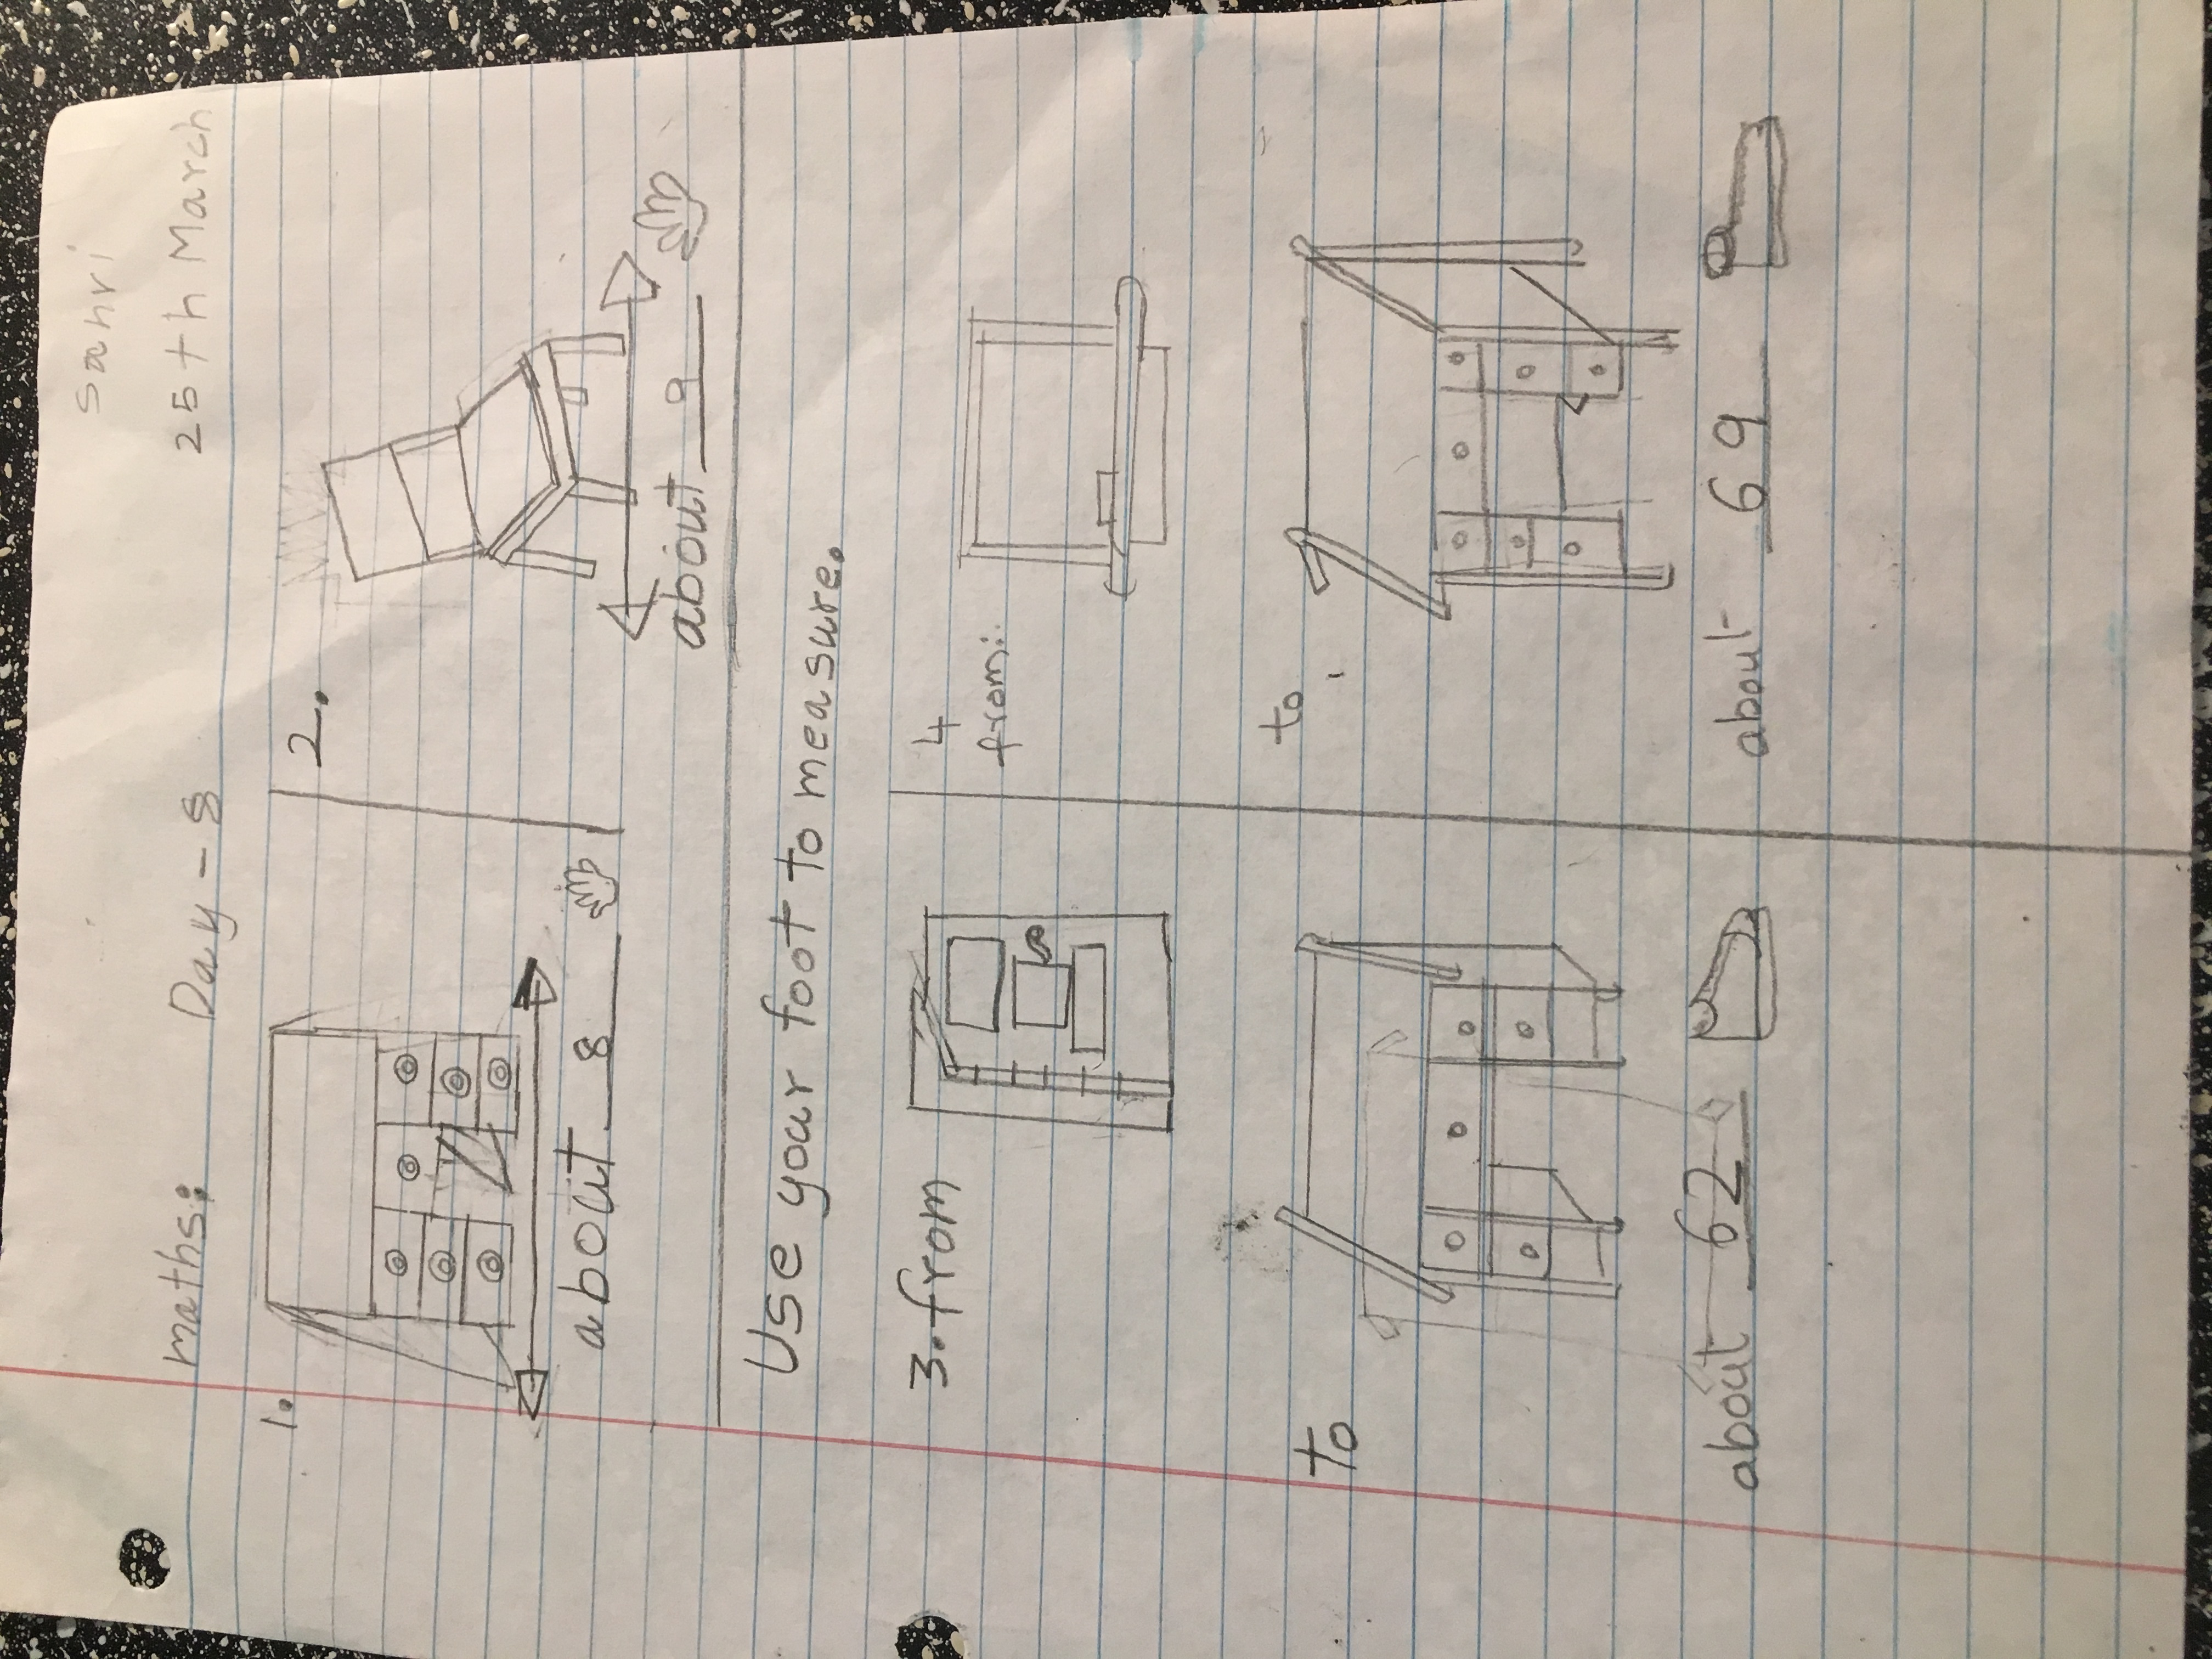 Sanri
maths: Day - 8 25th March
1.
about 8
2.
about 9
Use your foot to measure.
3. from
to
about 62
4
from:
to
about 69